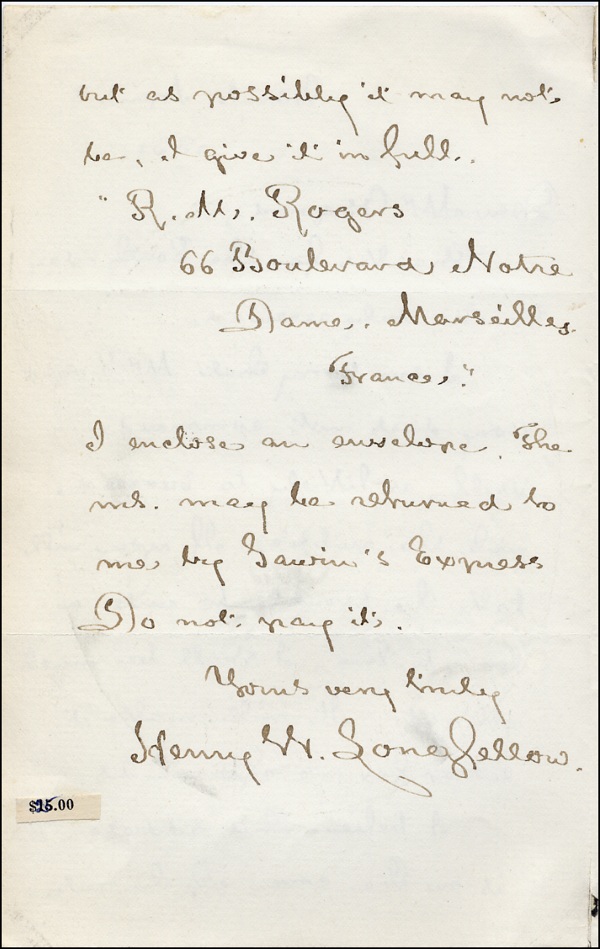 but as possibly it may not
be, I give it in full.
"R. M. Rogers
66 Boulevard Notre
Dame. Marseilles.
France."
I enclose an envelope. The
ms. may be returned to
me by Sawin's Express
Do not pay it.
Yours very truly
Henry W. Longfellow.